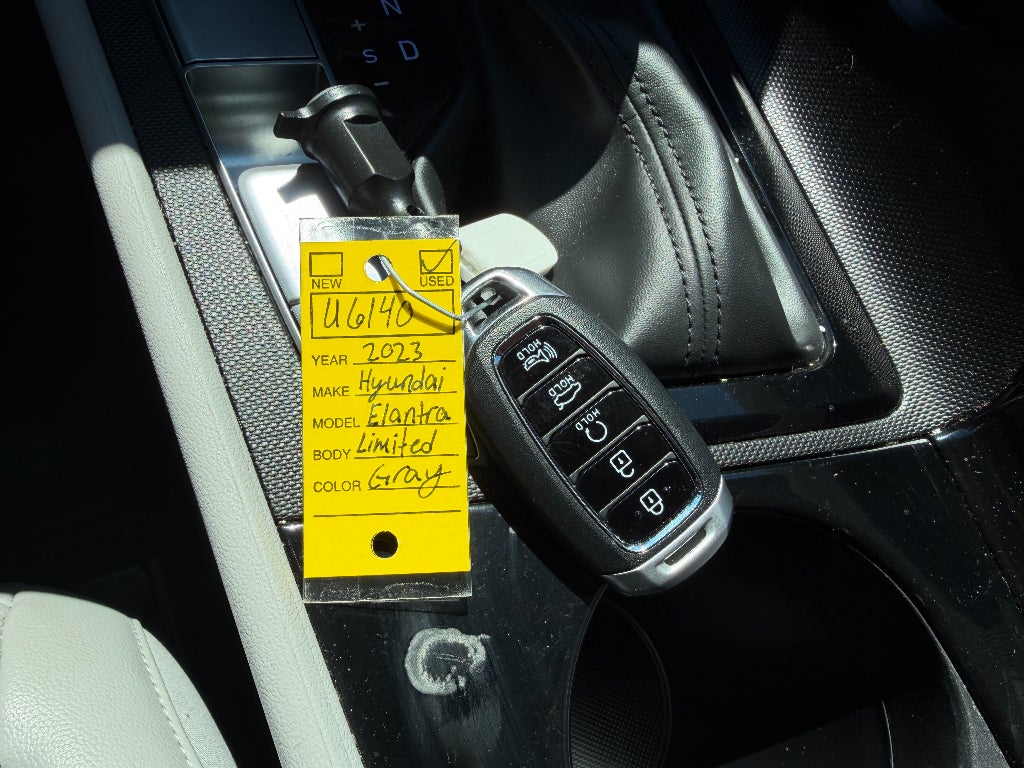 N
+
S D
-
NEW USED
U6140
YEAR 2023
MAKE Hyundai
MODEL Elantra
BODY Limited
COLOR Gray
HOLD
HOLD
HOLD